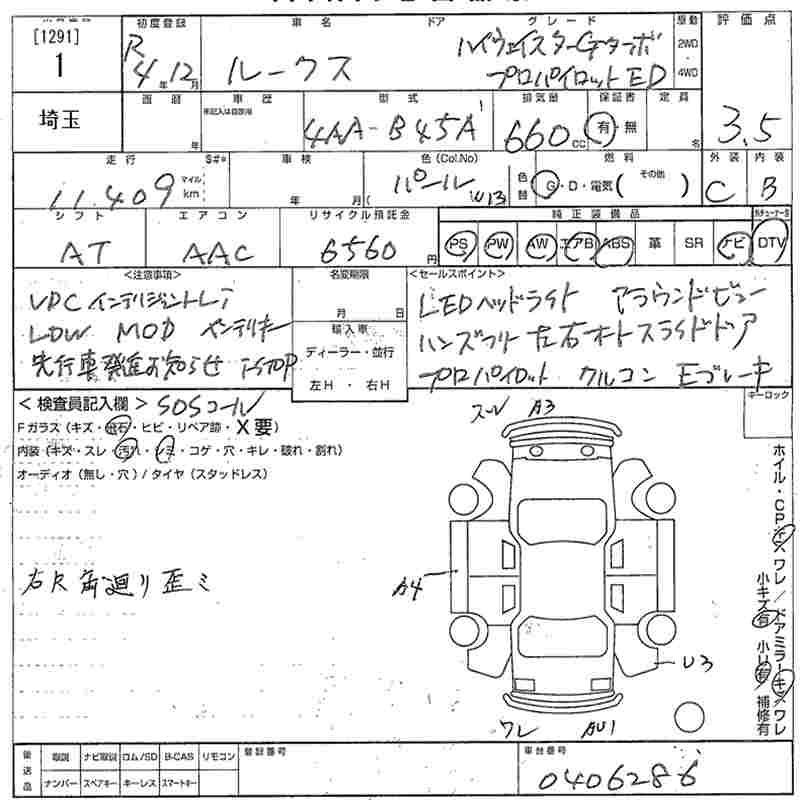 [1291]
1
埼玉
初度登録
R
4年12月
車名
ルークス
ドア
グレード
ハイウェイスターGターボ
プロパイロットED
原動
2WD
・
4WD
評価点
3.5
車歴
※記入は自家用
年
型式
4AA-B45A
排気量
660cc
保証書
有・無
定員
名
走行
S#*
11,409
マイル
km
車検
年 月(
色(Col.No)
パール
W13
色替
燃料
G・D・電気( その他 )
外装
C
内装
B
シフト
AT
エアコン
AAC
リサイクル預託金
6560円
純正装備品
PS PW AW エアB ABS 革 SR ナビ
DTV
<注意事項>
LOW MOD
名変期限
月 日
輸入車
ディーラー・並行
左H ・ 右H
<セールスポイント>
LEDヘッドライト アラウンドビュー
ハンズフリー左右オートスライドドア
プロパイロット クルコン Eブレーキ
<検査員記入欄> SOSコール
Fガラス(キズ・飛石・ヒビ・リペア跡・X要)
内装(キズ・スレ・汚れ・シミ・コゲ・穴・キレ・破れ・割れ)
オーディオ(無し・穴)/タイヤ(スタッドレス)
キーロック
スレ A3
A4
U3
ワレ AU1
ホイル・CPキズワレ/ドアミラーキズワレ
小キズ有 小U有 補修有
後送品
取説 ナビ取説 ロム/SD B-CAS リモコン
ナンバー スペアキー キーレス スマートキー
登録番号
車台番号
0406286